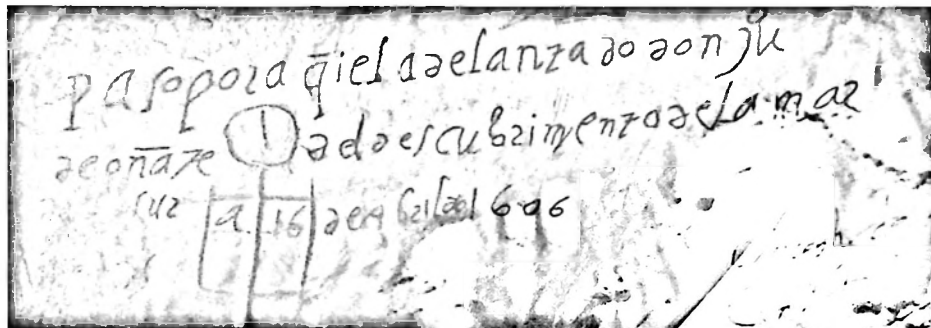 paso por aq̄i el adelantado don ju
de oñate del descubrimento de la mar
sur a 16 de abril del 606